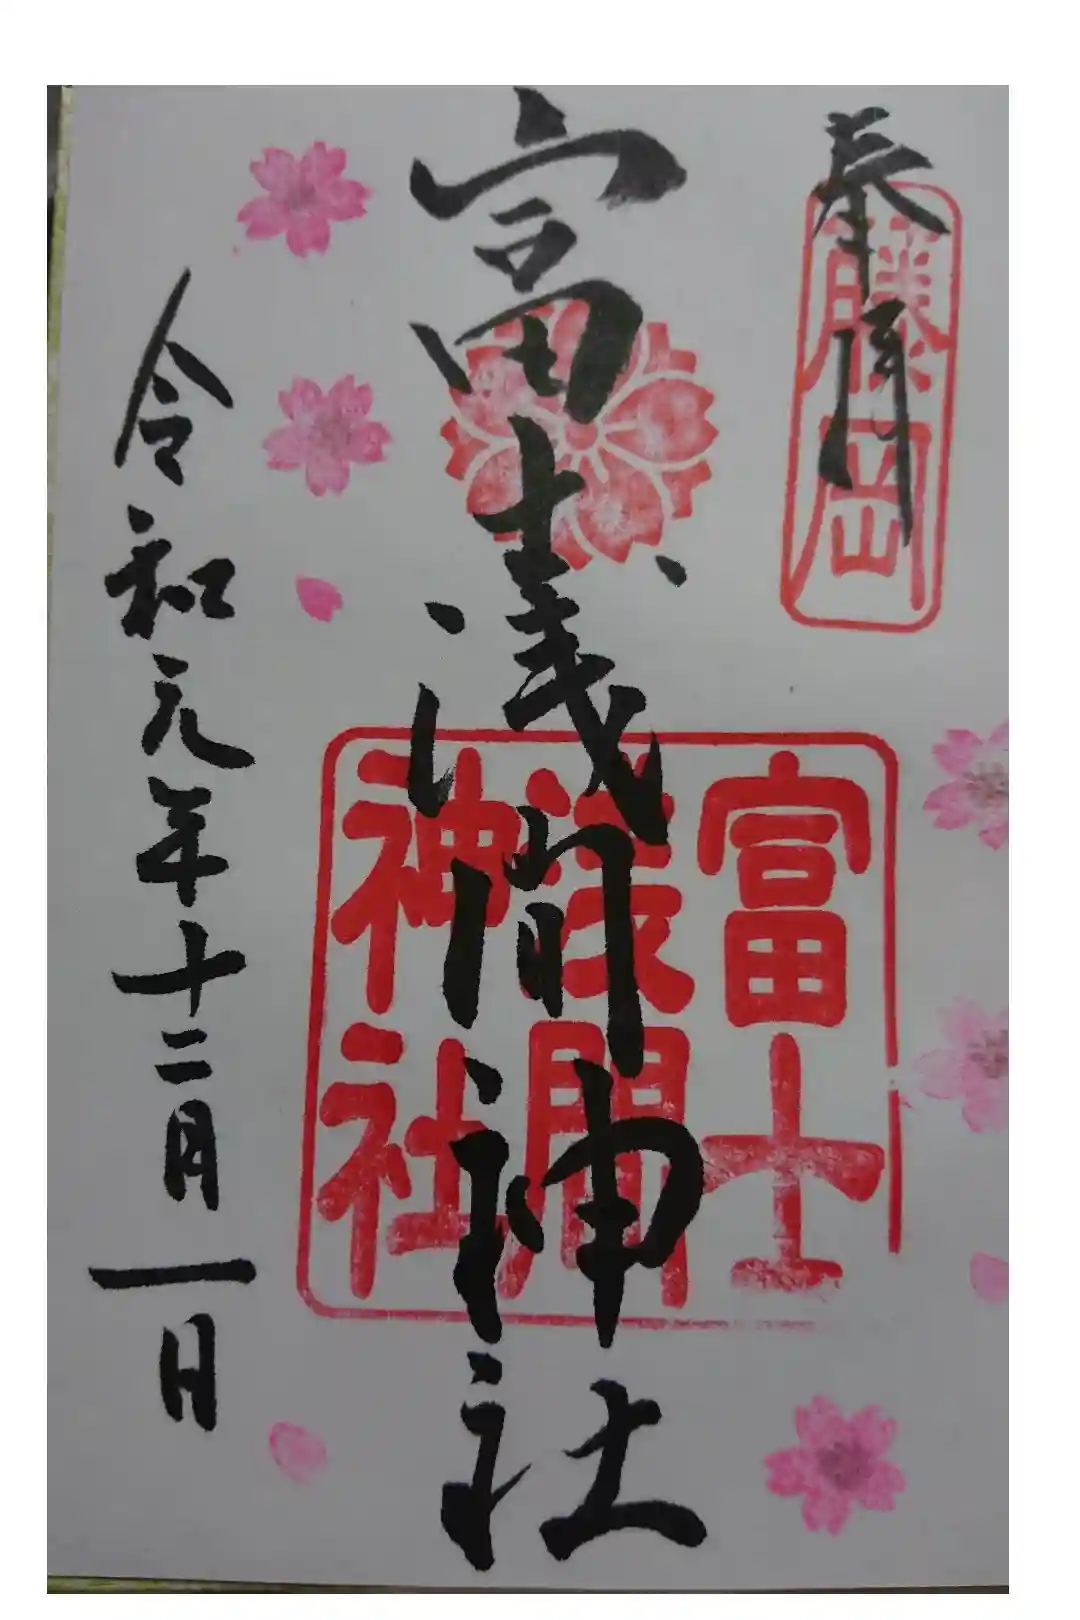 奉拝
藤岡
富士浅間神社
富士
浅間
神社
令和元年十二月一日